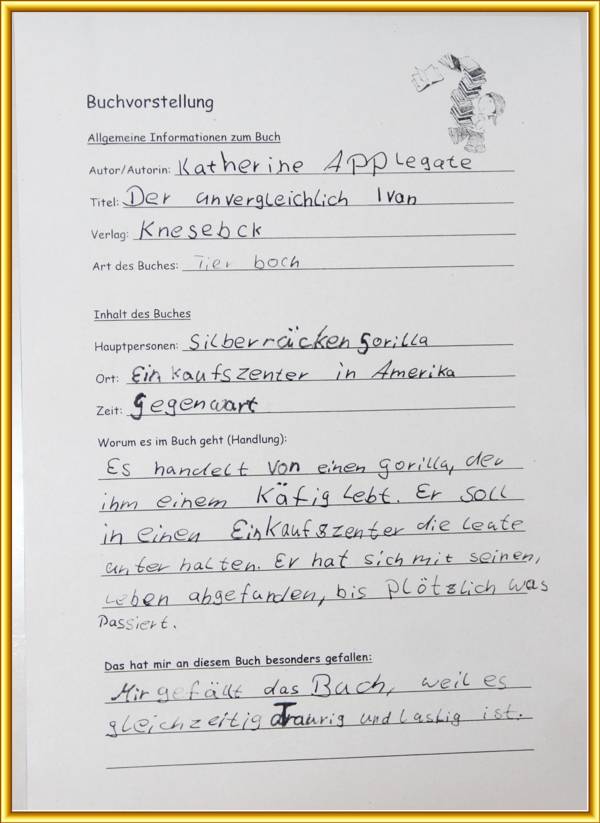 Buchvorstellung
Allgemeine Informationen zum Buch
Autor/Autorin: Katherine Applegate
Titel: Der unvergleichlich Ivan
Verlag: Knesebck
Art des Buches: Tier boch
Inhalt des Buches
Hauptpersonen: Silberräcken gorilla
Ort: Einkaufszenter in Amerika
Zeit: gegenwart
Worum es im Buch geht (Handlung):
Es handelt von einen gorilla, der
ihm einem Käfig lebt. Er soll
in einen Einkaufszenter die leute
unter halten. Er hat sich mit seinen,
Leben abgefunden, bis plötzlich was
Passiert.
Das hat mir an diesem Buch besonders gefallen:
Mir gefällt das Buch, weil es
gleichzeitig Traurig und lastig ist.